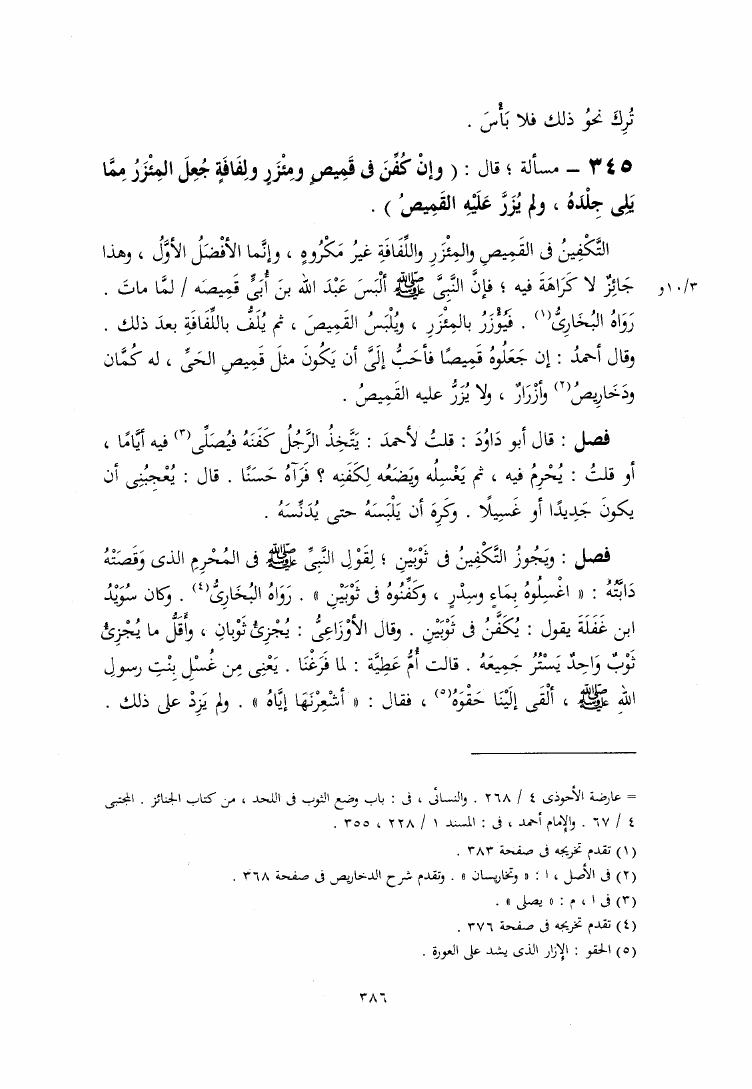 تُرِكَ نحوُ ذلك فلا بَأْسَ .
٣٤٥ – مسألة ؛ قال : ( وإنْ كُفِّنَ فى قَمِيصٍ ومِئْزَرٍ ولِفَافَةٍ جُعِلَ المِئْزَرُ مِمَّا
يَلِى جِلْدَهُ ، ولم يُزَرَّ عَلَيْهِ القَمِيصُ ) .
التَّكْفِينُ فى القَمِيصِ والمِئْزَرِ واللِّفَافَةِ غيرُ مَكْرُوهٍ ، وإنَّما الأفْضَلُ الأوَّلُ ، وهذا
٣/١٠و جَائِزٌ لا كَرَاهَةَ فيه ؛ فإنَّ النَّبِىَّ ﷺ ألْبَسَ عَبْدَ الله بنَ أُبَىٍّ قَمِيصَه / لمَّا ماتَ .
رَوَاهُ البُخَارِىُّ(١) . فَيُؤْزَرُ بالمِئْزَرِ ، ويُلْبَسُ القَمِيصَ ، ثم يُلَفُّ باللِّفَافَةِ بعدَ ذلك .
وقال أحمدُ : إن جَعَلُوهُ قَمِيصًا فأحَبُّ إلَىَّ أن يَكُونَ مثلَ قَمِيصِ الحَىِّ ، له كُمَّان
ودَخَارِيصُ(٢) وأزْرَارٌ ، ولا يُزَرُّ عليه القَمِيصُ .
فصل : قال أبو دَاوُدَ : قلتُ لأحمدَ : يَتَّخِذُ الرَّجُلُ كَفَنَهُ فيُصَلِّى(٣) فيه أيَّامًا ،
أو قلتُ : يُحْرِمُ فيه ، ثم يَغْسِلُه ويَضَعُه لِكَفَنِه ؟ فَرَآهُ حَسَنًا . قال : يُعْجِبُنِى أن
يكونَ جَدِيدًا أو غَسِيلًا . وكَرِهَ أن يَلْبَسَهُ حتى يُدَنِّسَهُ .
فصل : ويَجُوزُ التَّكْفِينُ فى ثَوْبَيْنِ ؛ لِقَوْلِ النَّبِىِّ ﷺ فى المُحْرِمِ الذى وَقَصَتْهُ
دَابَّتُهُ : « اغْسِلُوهُ بِمَاءٍ وسِدْرٍ ، وكَفِّنُوهُ فى ثَوْبَيْنِ » . رَوَاهُ البُخَارِىُّ(٤) . وكان سُوَيْدُ
ابن غَفَلَةَ يقول : يُكَفَّنُ فى ثَوْبَيْنِ . وقال الأوْزَاعِىُّ : يُجْزِئُ ثَوْبانِ ، وأقَلُّ ما يُجْزِئُ
ثَوْبٌ وَاحِدٌ يَسْتُرُ جَمِيعَهُ . قالت أُمُّ عَطِيَّة : لما فَرَغْنَا . يَعْنِى مِن غُسْلِ بِنْتِ رسولِ
اللهِ ﷺ ، ألْقَى إلَيْنَا حَقْوَهُ(٥) ، فقال : « أشْعِرْنَهَا إيَّاهُ » . ولم يَزِدْ على ذلك .
= عارضة الأحوذى ٤ / ٢٦٨ . والنسائى ، فى : باب وضع الثوب فى اللحد ، من كتاب الجنائز . المجتبى
٤ / ٦٧ . والإمام أحمد ، فى : المسند ١ / ٢٢٨ ، ٣٥٥ .
(١) تقدم تخريجه فى صفحة ٣٨٣ .
(٢) فى الأصل ، ا : « وتخاريسان » . وتقدم شرح الدخاريص فى صفحة ٣٦٨ .
(٣) فى ا ، م : « يصلى » .
(٤) تقدم تخريجه فى صفحة ٣٧٦ .
(٥) الحقو : الإزار الذى يشد على العورة .
٣٨٦